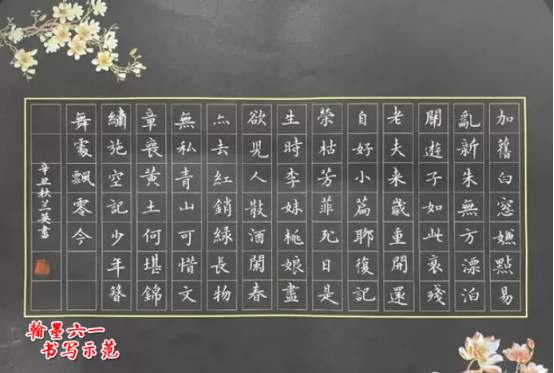 加舊白窓嫵點易
亂新朱無方漂泊
開遊子如此衰殘
老夫来歲重開還
自好小篇聊復記
榮枯芳菲死日是
生時李妹桃娘盡
欲兒人散酒闌春
亦去紅銷綠長物
無私青山可惜文
章喪黄土何堪錦
繡施空記少年簪
舞處飄零今
辛丑秋兰英書
翰墨六一
书写示范